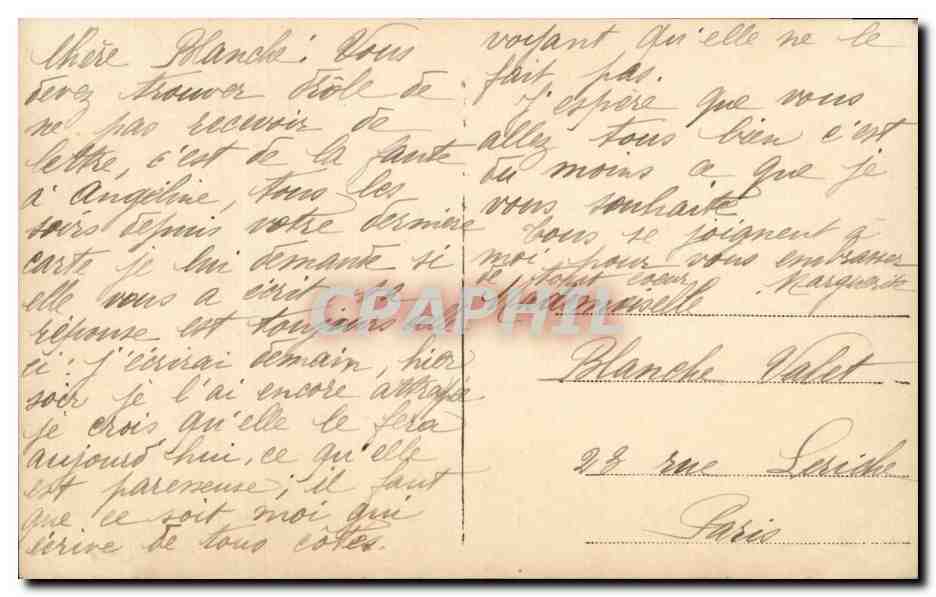 Chère Blanche: Vous
devez trouver drôle de
ne pas recevoir de
lettre, c'est de la faute
à Angéline, tous les
soirs depuis votre dernière
carte je lui demande si
elle vous a écrit sa
réponse est toujours celle
ci: j'écrirai demain, hier
soir je l'ai encore attrapée
je crois qu'elle le fera
aujourd'hui, ce qu'elle
est paresseuse; il faut
que ce soit moi qui
écrive de tous côtés.
voyant qu'elle ne le
fait pas.
J'espère que vous
allez tous bien c'est
du moins ce que je
vous souhaite
Tous se joignent à
moi pour vous embrasser
de tout coeur Marguerite
Mademoiselle
Blanche Valet
23 rue Leriche
Paris
CPAPHIL